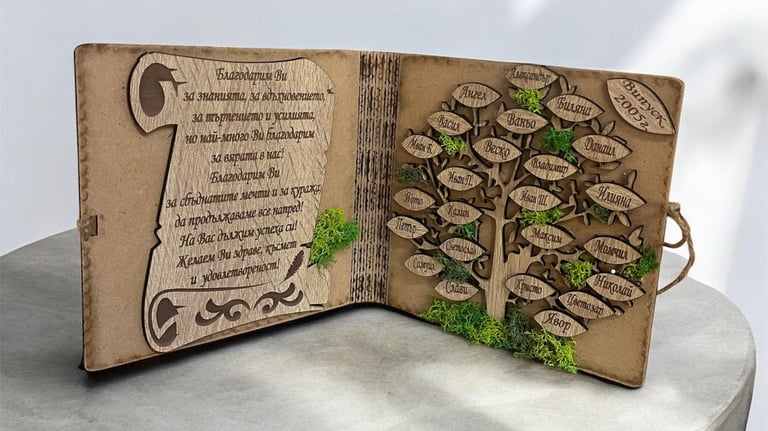 Благодарим Ви
за знанията, за вдъхновението,
за търпението и усилията,
но най-много Ви благодарим
за вярата в нас!
Благодарим Ви
за сбъднатите мечти и за куража
да продължаваме все напред!
На Вас дължим успеха си!
Желаем Ви здраве, късмет
и удовлетвореност!
Випуск
2005г.
Александър
Ангел
Биляна
Васил
Ваньо
Данаил
Иван К.
Веско
Владимир
Иван П.
Илияна
Йото
Иван Ш.
Калин
Петър
Максим
Момчил
Светослав
Николай
Слави
Христо
Цветозар
Явор